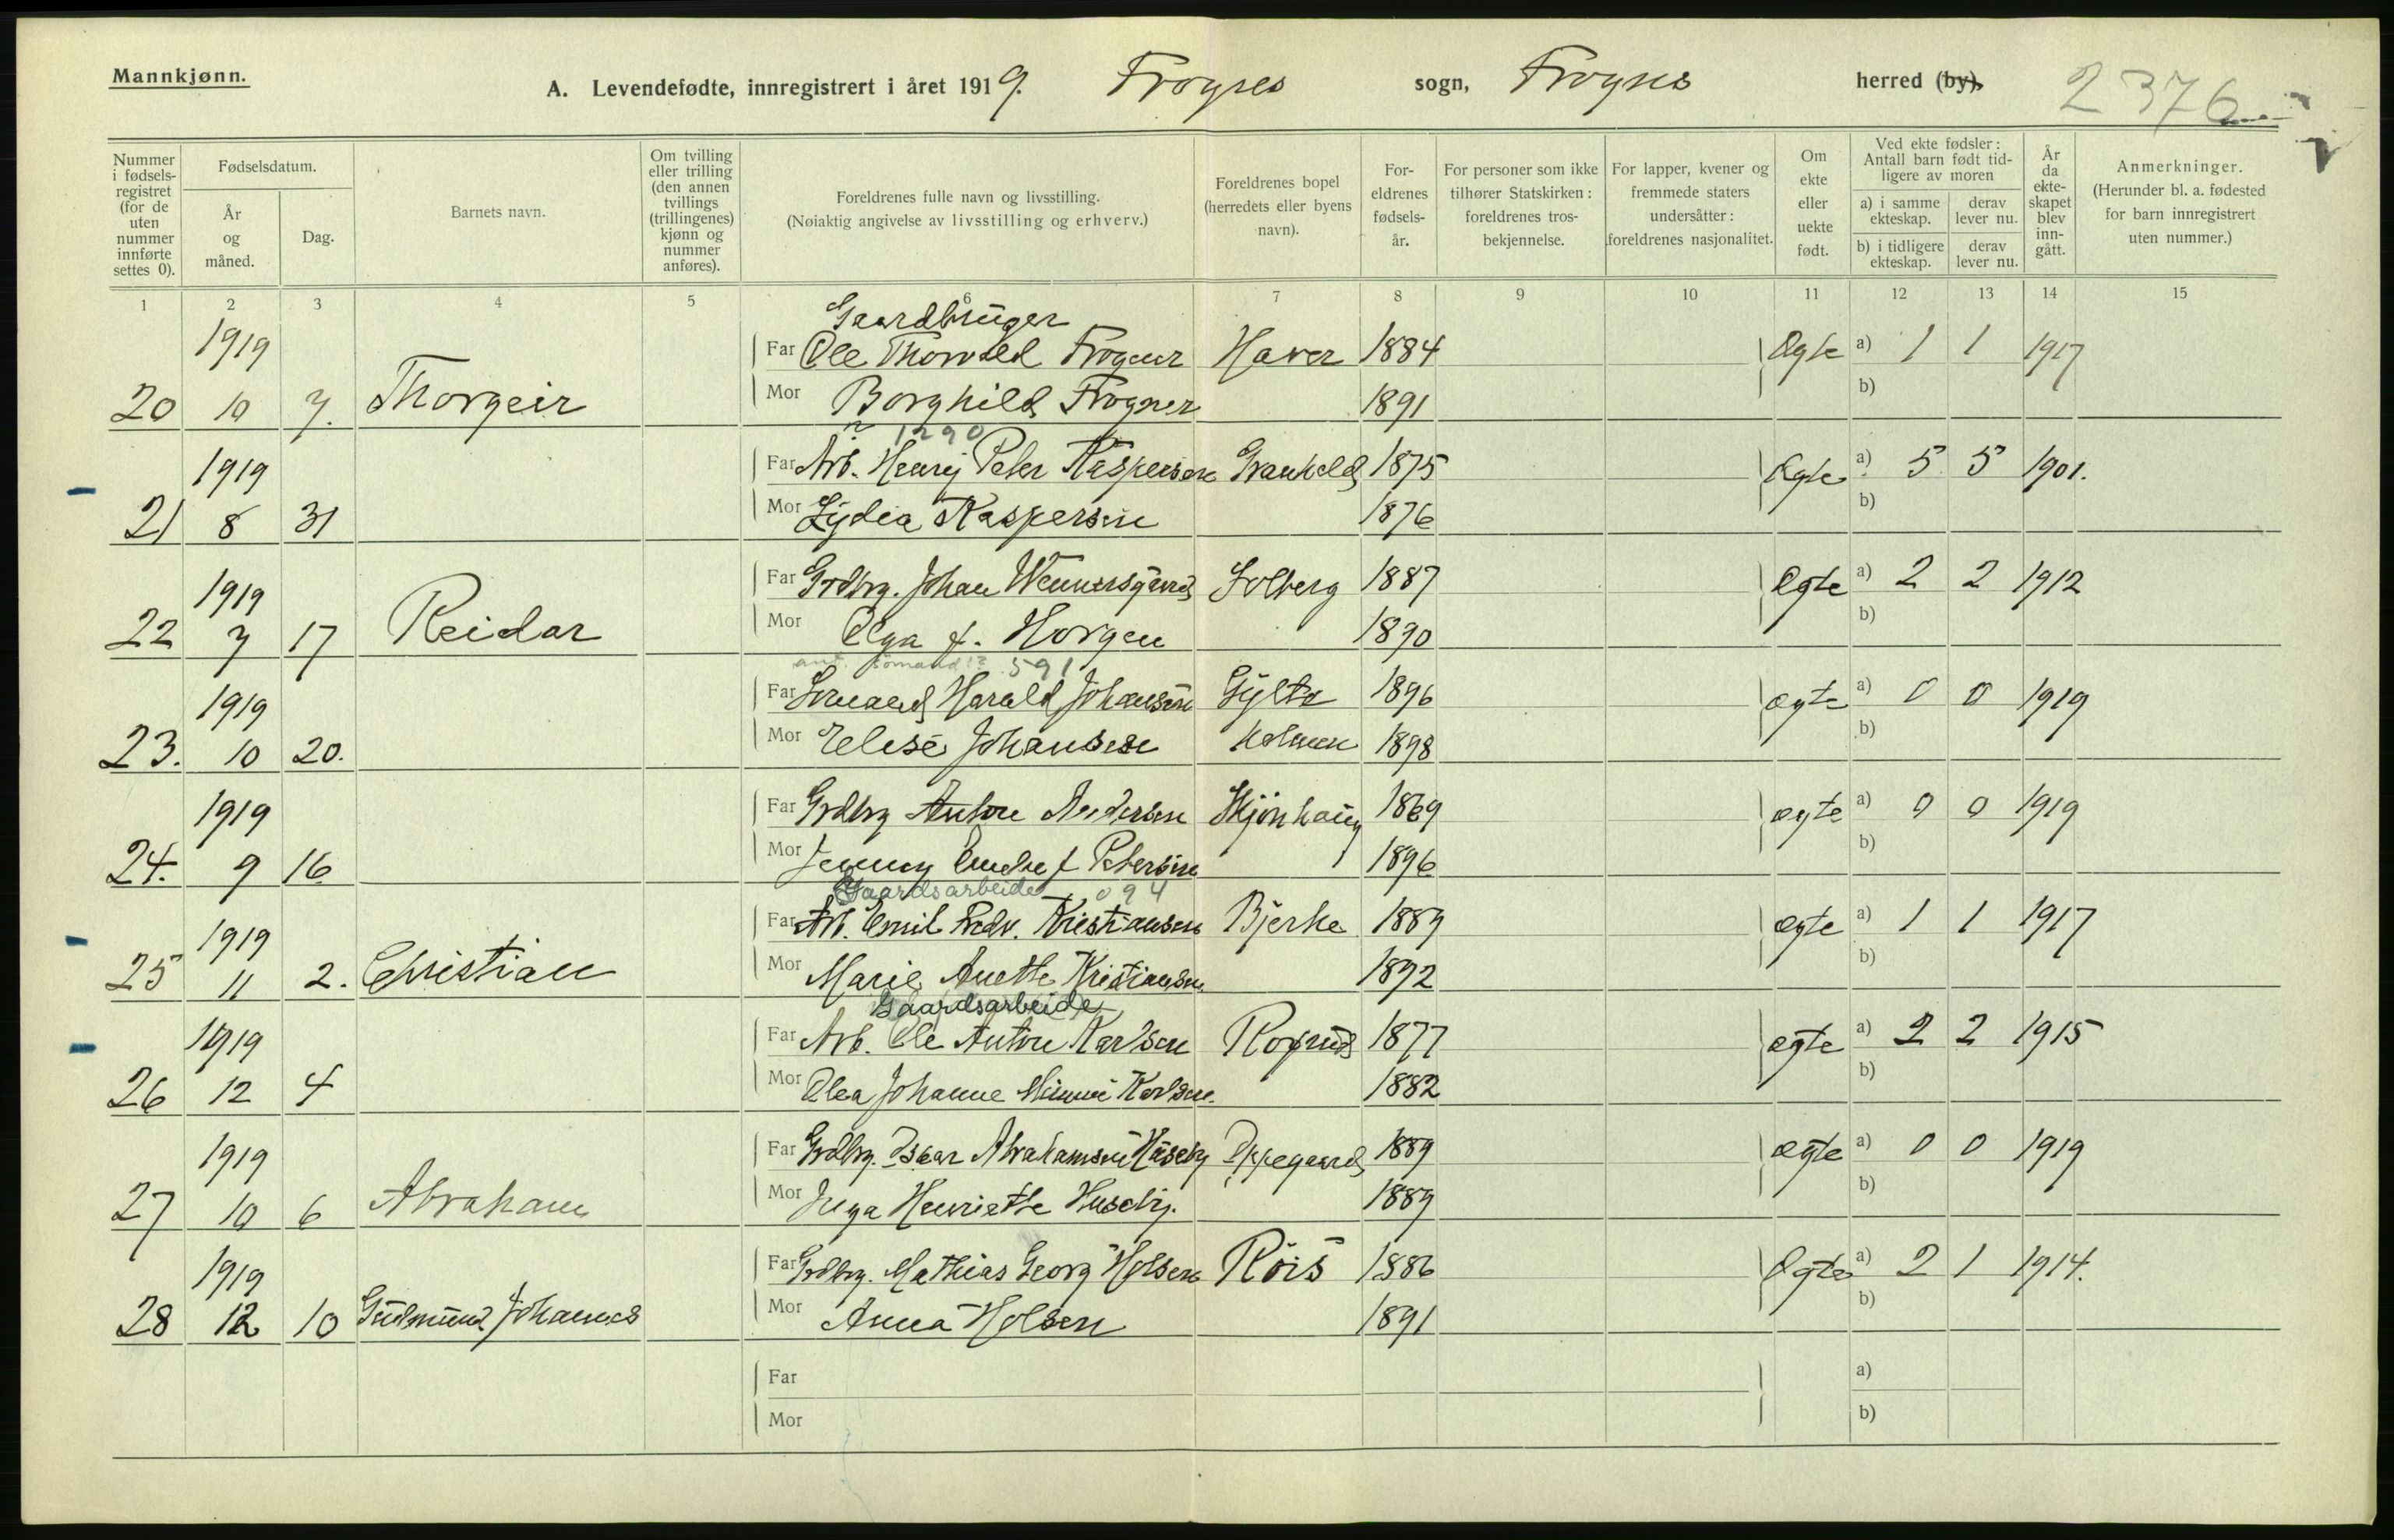 Mannkjønn.
A. Levendefødte, innregistrert i året 1919. Frogner sogn, Frogner herred (by). 2376
Nummer i fødsels-registret (for de uten nummer innførte settes 0).
Fødselsdatum.
År og måned.
Dag.
Barnets navn.
Om tvilling eller trilling (den annen tvillings (trillingenes) kjønn og nummer anføres).
Foreldrenes fulle navn og livsstilling.
(Nøiaktig angivelse av livsstilling og erhverv.)
Foreldrenes bopel (herredets eller byens navn).
For-eldrenes fødsels-år.
For personer som ikke tilhører Statskirken: foreldrenes tros-bekjennelse.
For lapper, kvener og fremmede staters undersåtter: foreldrenes nasjonalitet.
Om ekte eller uekte født.
Ved ekte fødsler: Antall barn født tid-ligere av moren
a) i samme ekteskap. derav lever nu.
b) i tidligere ekteskap. derav lever nu.
År da ekte-skapet blev inn-gått.
Anmerkninger.
(Herunder bl. a. fødested for barn innregistrert uten nummer.)
1 2 3 4 5 6 7 8 9 10 11 12 13 14 15
Gaardbruger
1919 Far Ole Thorvald Frogner Haver 1884 Ægte a) 1 1 1917
20 10 7. Thorgeir Mor Borghild Frogner 1891 b)
1290
1919 Far Arb. Henrij Peter Kaspersen 1875 Ægte a) 5 5 1901.
21 8 31 Mor Lydia Kaspersen 1876 b)
1919 Far Grdbrg. Johan Wennersgaard Solberg 1887 Ægte a) 2 2 1912
22 7 17 Reidar Mor Olga f. Horgen 1890 b)
ant. sömand!? 591
1919 Far Harald Johansen 1896 ægte a) 0 0 1919
23. 10 20. Mor Elise Johansen Holmen 1898 b)
1919 Far Grdbrg Anton Andersen Skjönhaug 1869 ægte a) 0 0 1919
24. 9 16 Mor Jenny f Petersen 1896 b)
Gaardsarbeide 094
1919 Far Arb. Emil Kristiansen Bjerke 1889 ægte a) 1 1 1917
25 11 2. Christian Mor Marie Anette Kristiansen 1892 b)
Gaardsarbeide
1919 Far Arb. Ole Anton Karlsen 1877 ægte a) 2 2 1915
26 12 4 Mor Olea Johanne Minni Karlsen. 1882 b)
1919 Far Grdbrg. Oskar Abrahamsen Huseby Oppegaard 1889 ægte a) 0 0 1919
27 10 6 Abraham Mor Inga Henriette Huseby. 1889 b)
1919 Far Grdbrg. Mathias Georg Holsen Röis 1886 Ægte a) 2 1 1914.
28 12 10 Gudmund Johannes Mor Anna Holsen 1891 b)
Far a)
Mor b)